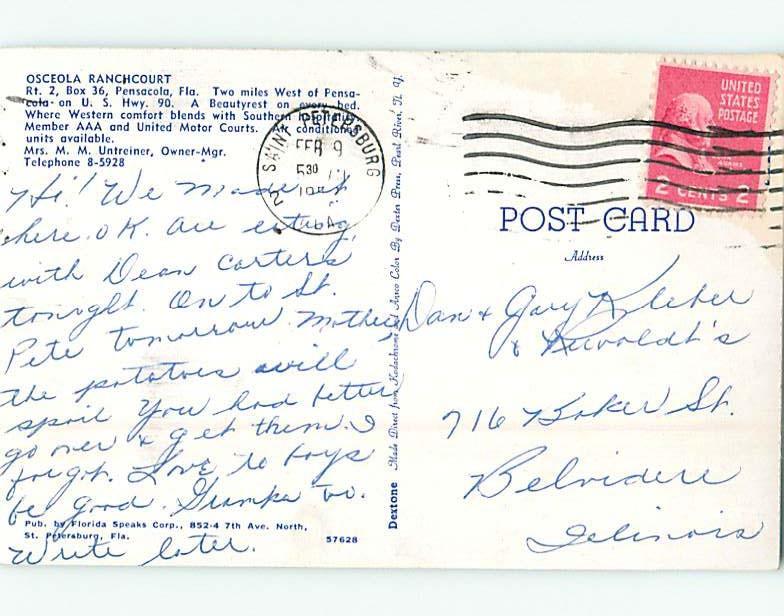 OSCEOLA RANCHCOURT
Rt. 2, Box 36, Pensacola, Fla. Two miles West of Pensa-
cola on U. S. Hwy. 90. A Beautyrest on every bed.
Where Western comfort blends with Southern hospitality.
Member AAA and United Motor Courts. Air conditioned
units available.
Mrs. M. M. Untreiner, Owner-Mgr.
Telephone 8-5928
Hi! We made it
here. O.K. are eating
with Dean Carters
tonight. On to St.
Pete tomorrow. Mother,
the potatoes will
spoil you had better
go over & get them. I
forgot. Love to boys
be good. Grampa too.
Write later.
Pub. by Florida Speaks Corp., 852-4 7th Ave. North,
St. Petersburg, Fla.
57628
Dextone Made Direct from Kodachrome and Ansco Color By Dexter Press, Pearl River, N. Y.
SAINT PETERSBURG
2
FEB 9
5 30
FLA.
UNITED
STATES
POSTAGE
ADAMS
2 CENTS 2
POST CARD
Address
Dan & Gary Kleber
&
716 Baker St.
Belvidere
Illinois